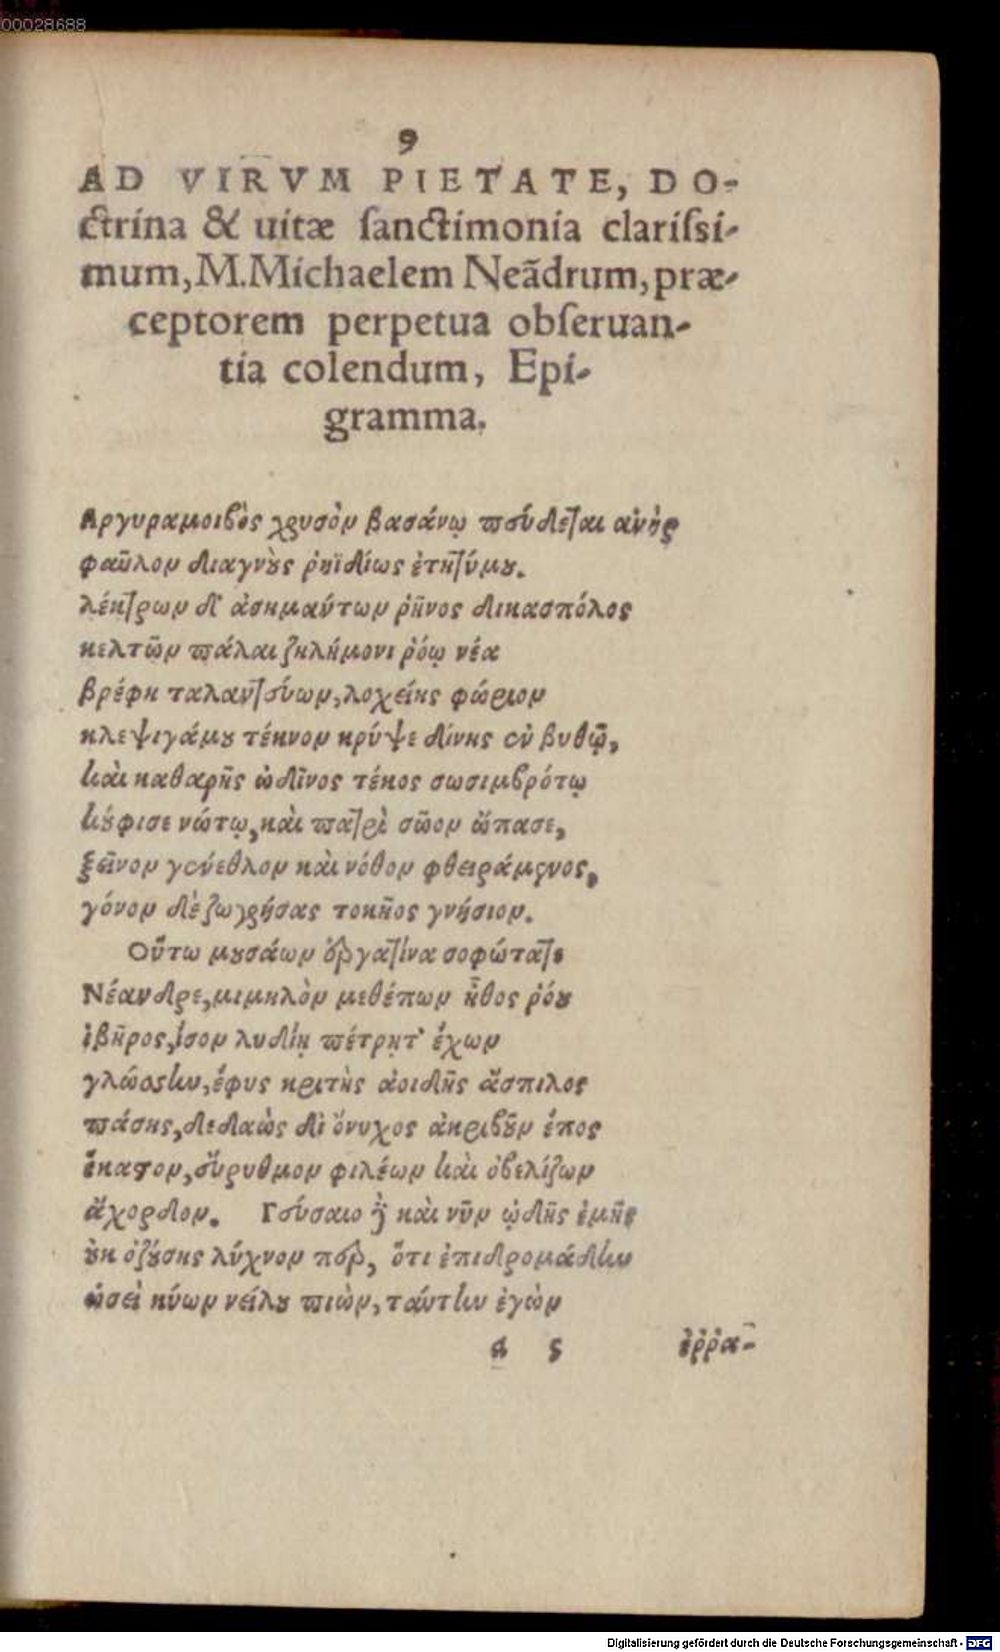 00028688
9
AD VIRVM PIETATE, DO-
ctrina & uitæ ſanctimonia clariſsi-
mum, M. Michaelem Neãdrum, præ-
ceptorem perpetua obſeruan-
tia colendum, Epi-
gramma.
Αργυραμοιβὸς χρυσὸν βασάνῳ πεύθεται ἀνὴρ
φαῦλον διαγνοὺς ῥηϊδίως ἐτητύμου.
λέκτρων δ' ἀσημαύτων ῥῆνος δικασπόλος
κελτῶν πάλαι ζηλήμονι ῥόῳ νέα
βρέφη ταλαντεύων, λοχείης φώριον
κλεψιγάμου τέκνον κρύψε δίνης ἐν βυθῷ,
καὶ καθαρῆς ὠδῖνος τέκος σωσιμβρότῳ
κούφισε νώτῳ, καὶ πατρὶ σῶον ὤπασε,
ξεῖνον γενέθλον καὶ νόθον φθειράμενος,
γόνον δὲ ζωγρήσας τοκῆος γνήσιον.
Οὕτω μουσάων ὄργα τίνα σοφώτατε
Νέανδρε, μιμηλὸν μεθέπων ἦθος ῥόου
ἰβῆρος, ἶσον λυδίῃ πέτρῃ τ' ἔχων
γλῶσσην, ἔφυς κριτὴς ἀοιδῆς ἄσπιλος
πάσης, δεδαὼς δι' ὄνυχος ἀκριβοῦν ἔπος
ἕκαστον, εὔρυθμον φιλέων καὶ ὀβελίζων
ἄχορδον. Γεύσαιο δὲ καὶ νῦν ᾠδῆς ἐμῆς
οὐκ ὀζούσης λύχνον περ, ὅτι ἐπιδρομάδην
ὡσεὶ κύων νείλου πιὼν, ταύτην ἐγὼν
a 5 ἐῤῥα-
Digitalisierung gefördert durch die Deutsche Forschungsgemeinschaft - DFG